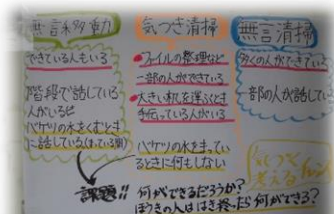 無言移動
できている人もいる
階段で話している
人がいるピ
バケツの水をくむとき
に話している(まっている間)
気づき清掃
ファイルの整理など
一部の人ができている
大きい机を運ぶとき
手伝っている人がいる
バケツの水をまってい
るときに何もしない
無言清掃
多くの人ができている
一部の人が話してい
気づき
考える
課題!!
何ができるだろうか?
ほうきの人ははき終ったら何ができる?